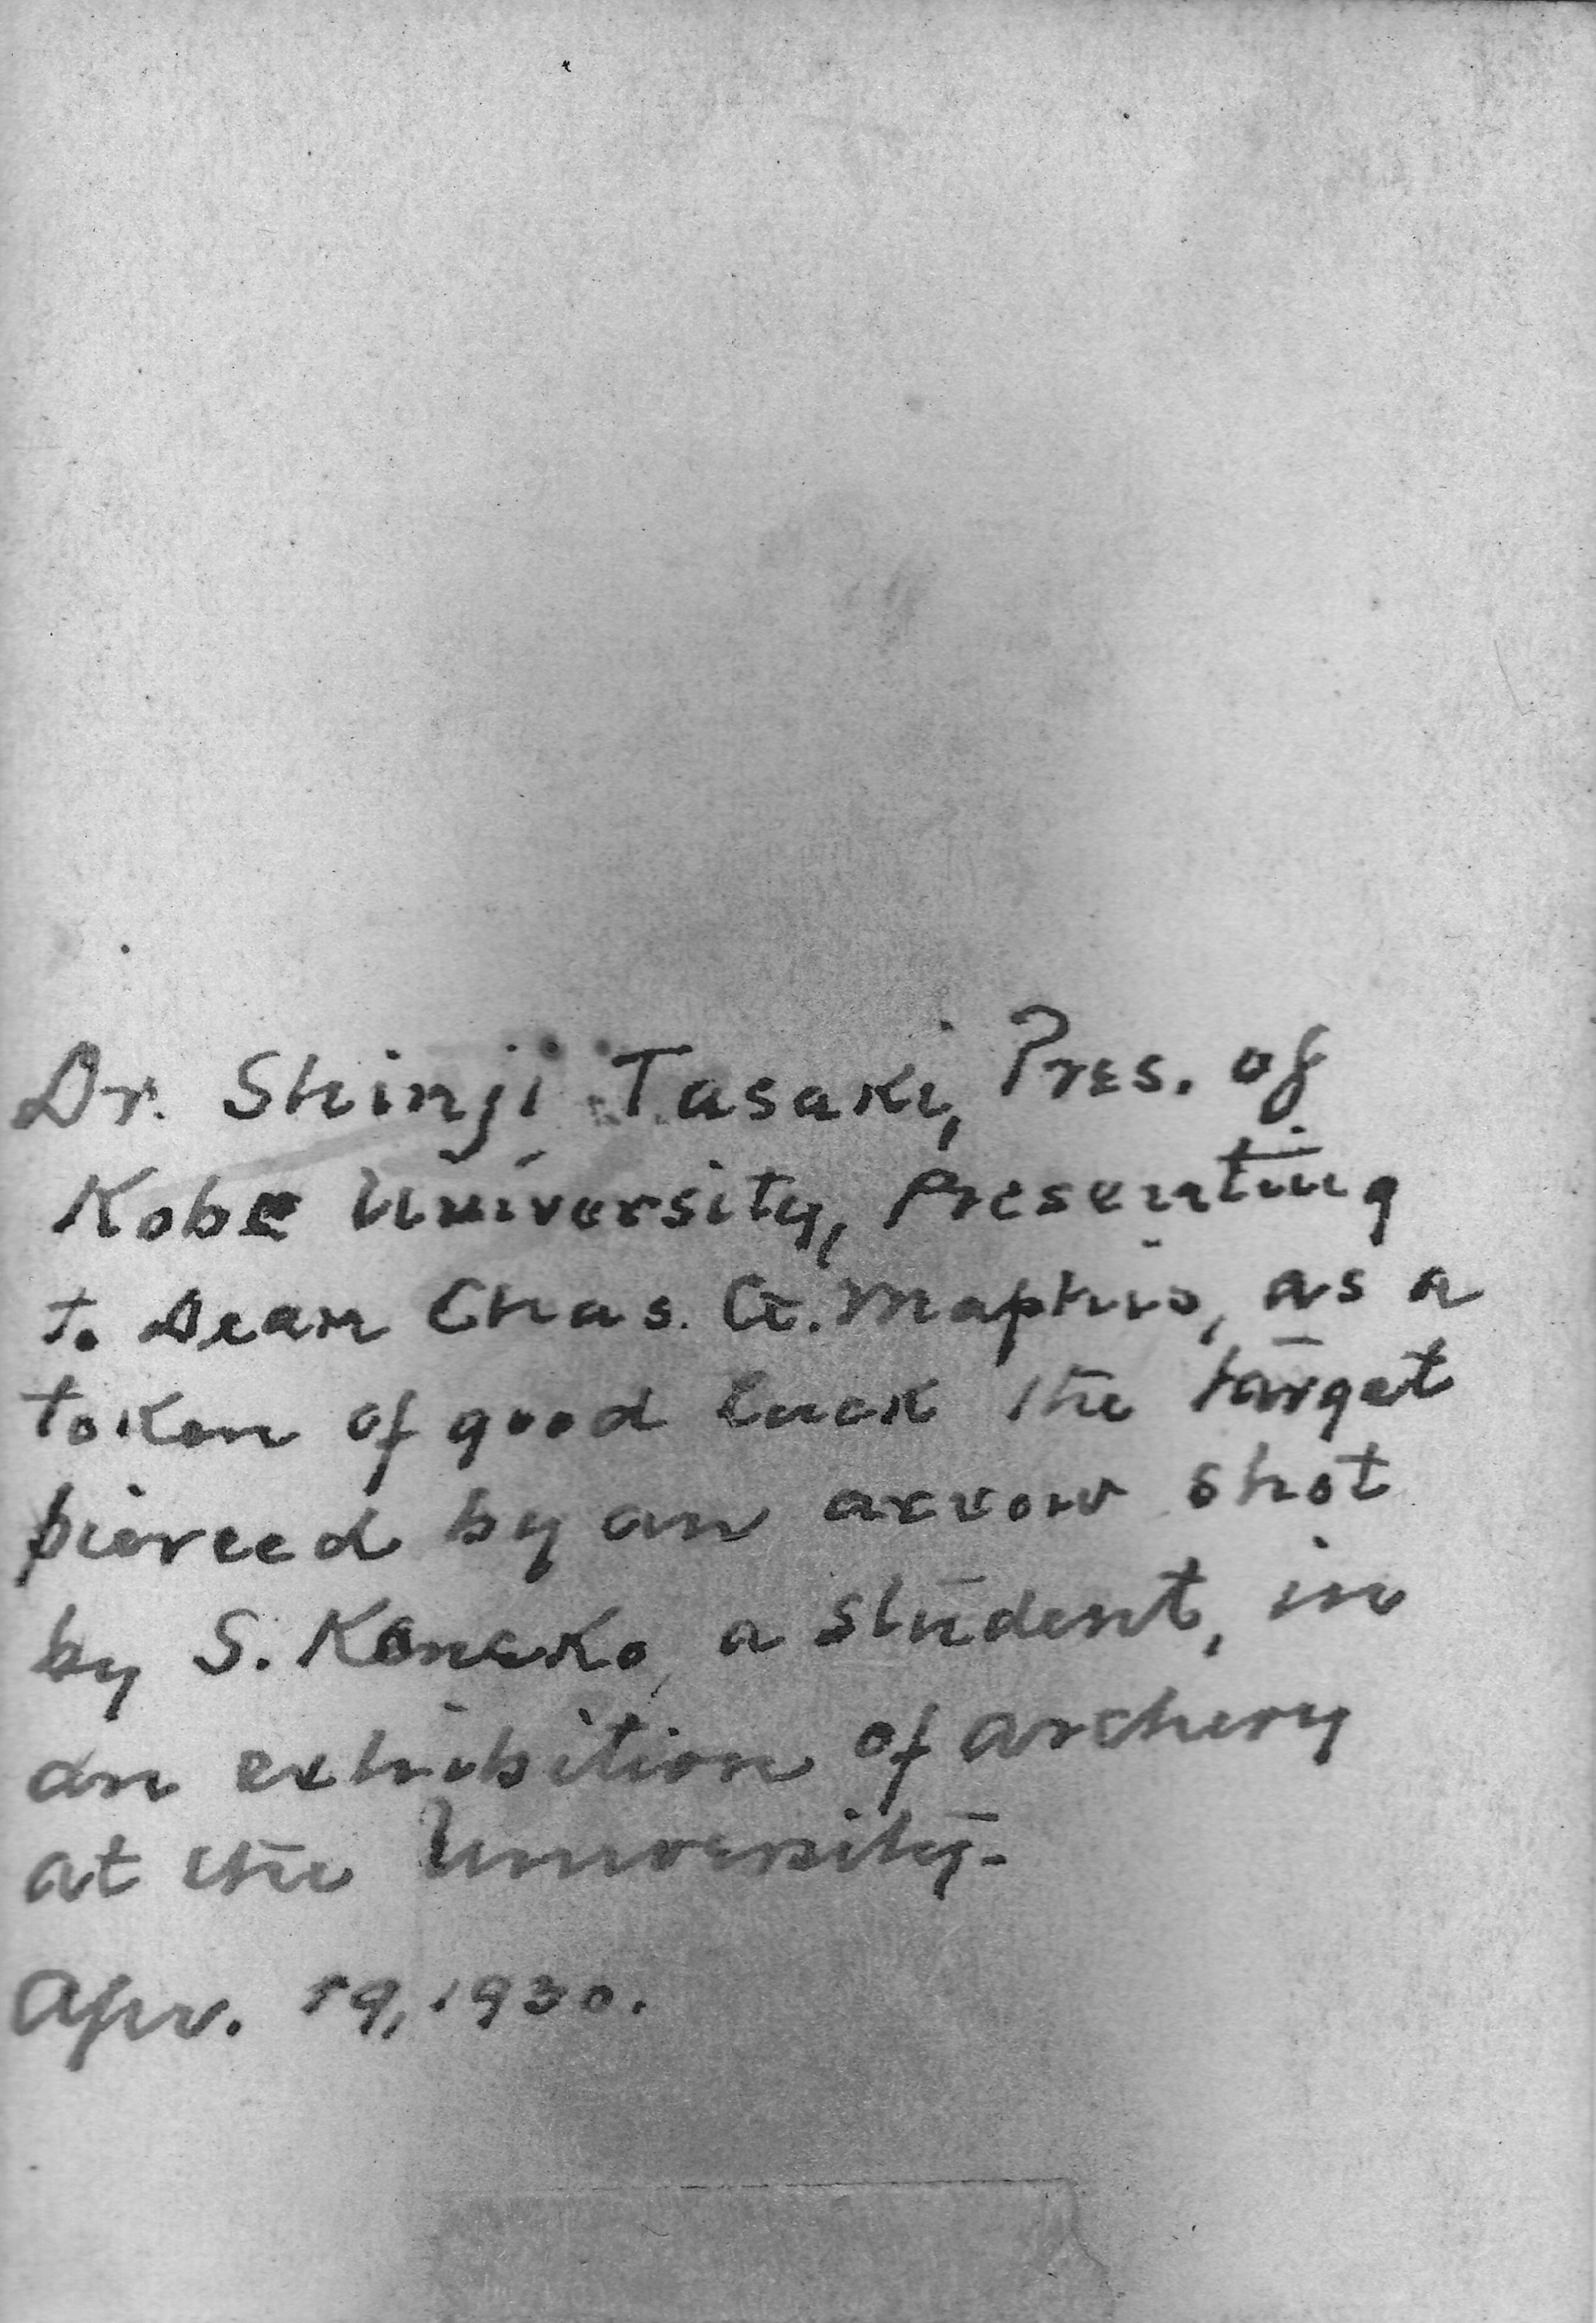 Dr. Shinji Tasaki, Pres. of
Kobe University, Presenting
to Dean Chas. G. Maphis, as a
token of good luck the target
pierced by an arrow shot
by S. Konako, a student, in
an exhibition of archery
at the University.
Apr. 19, 1930.